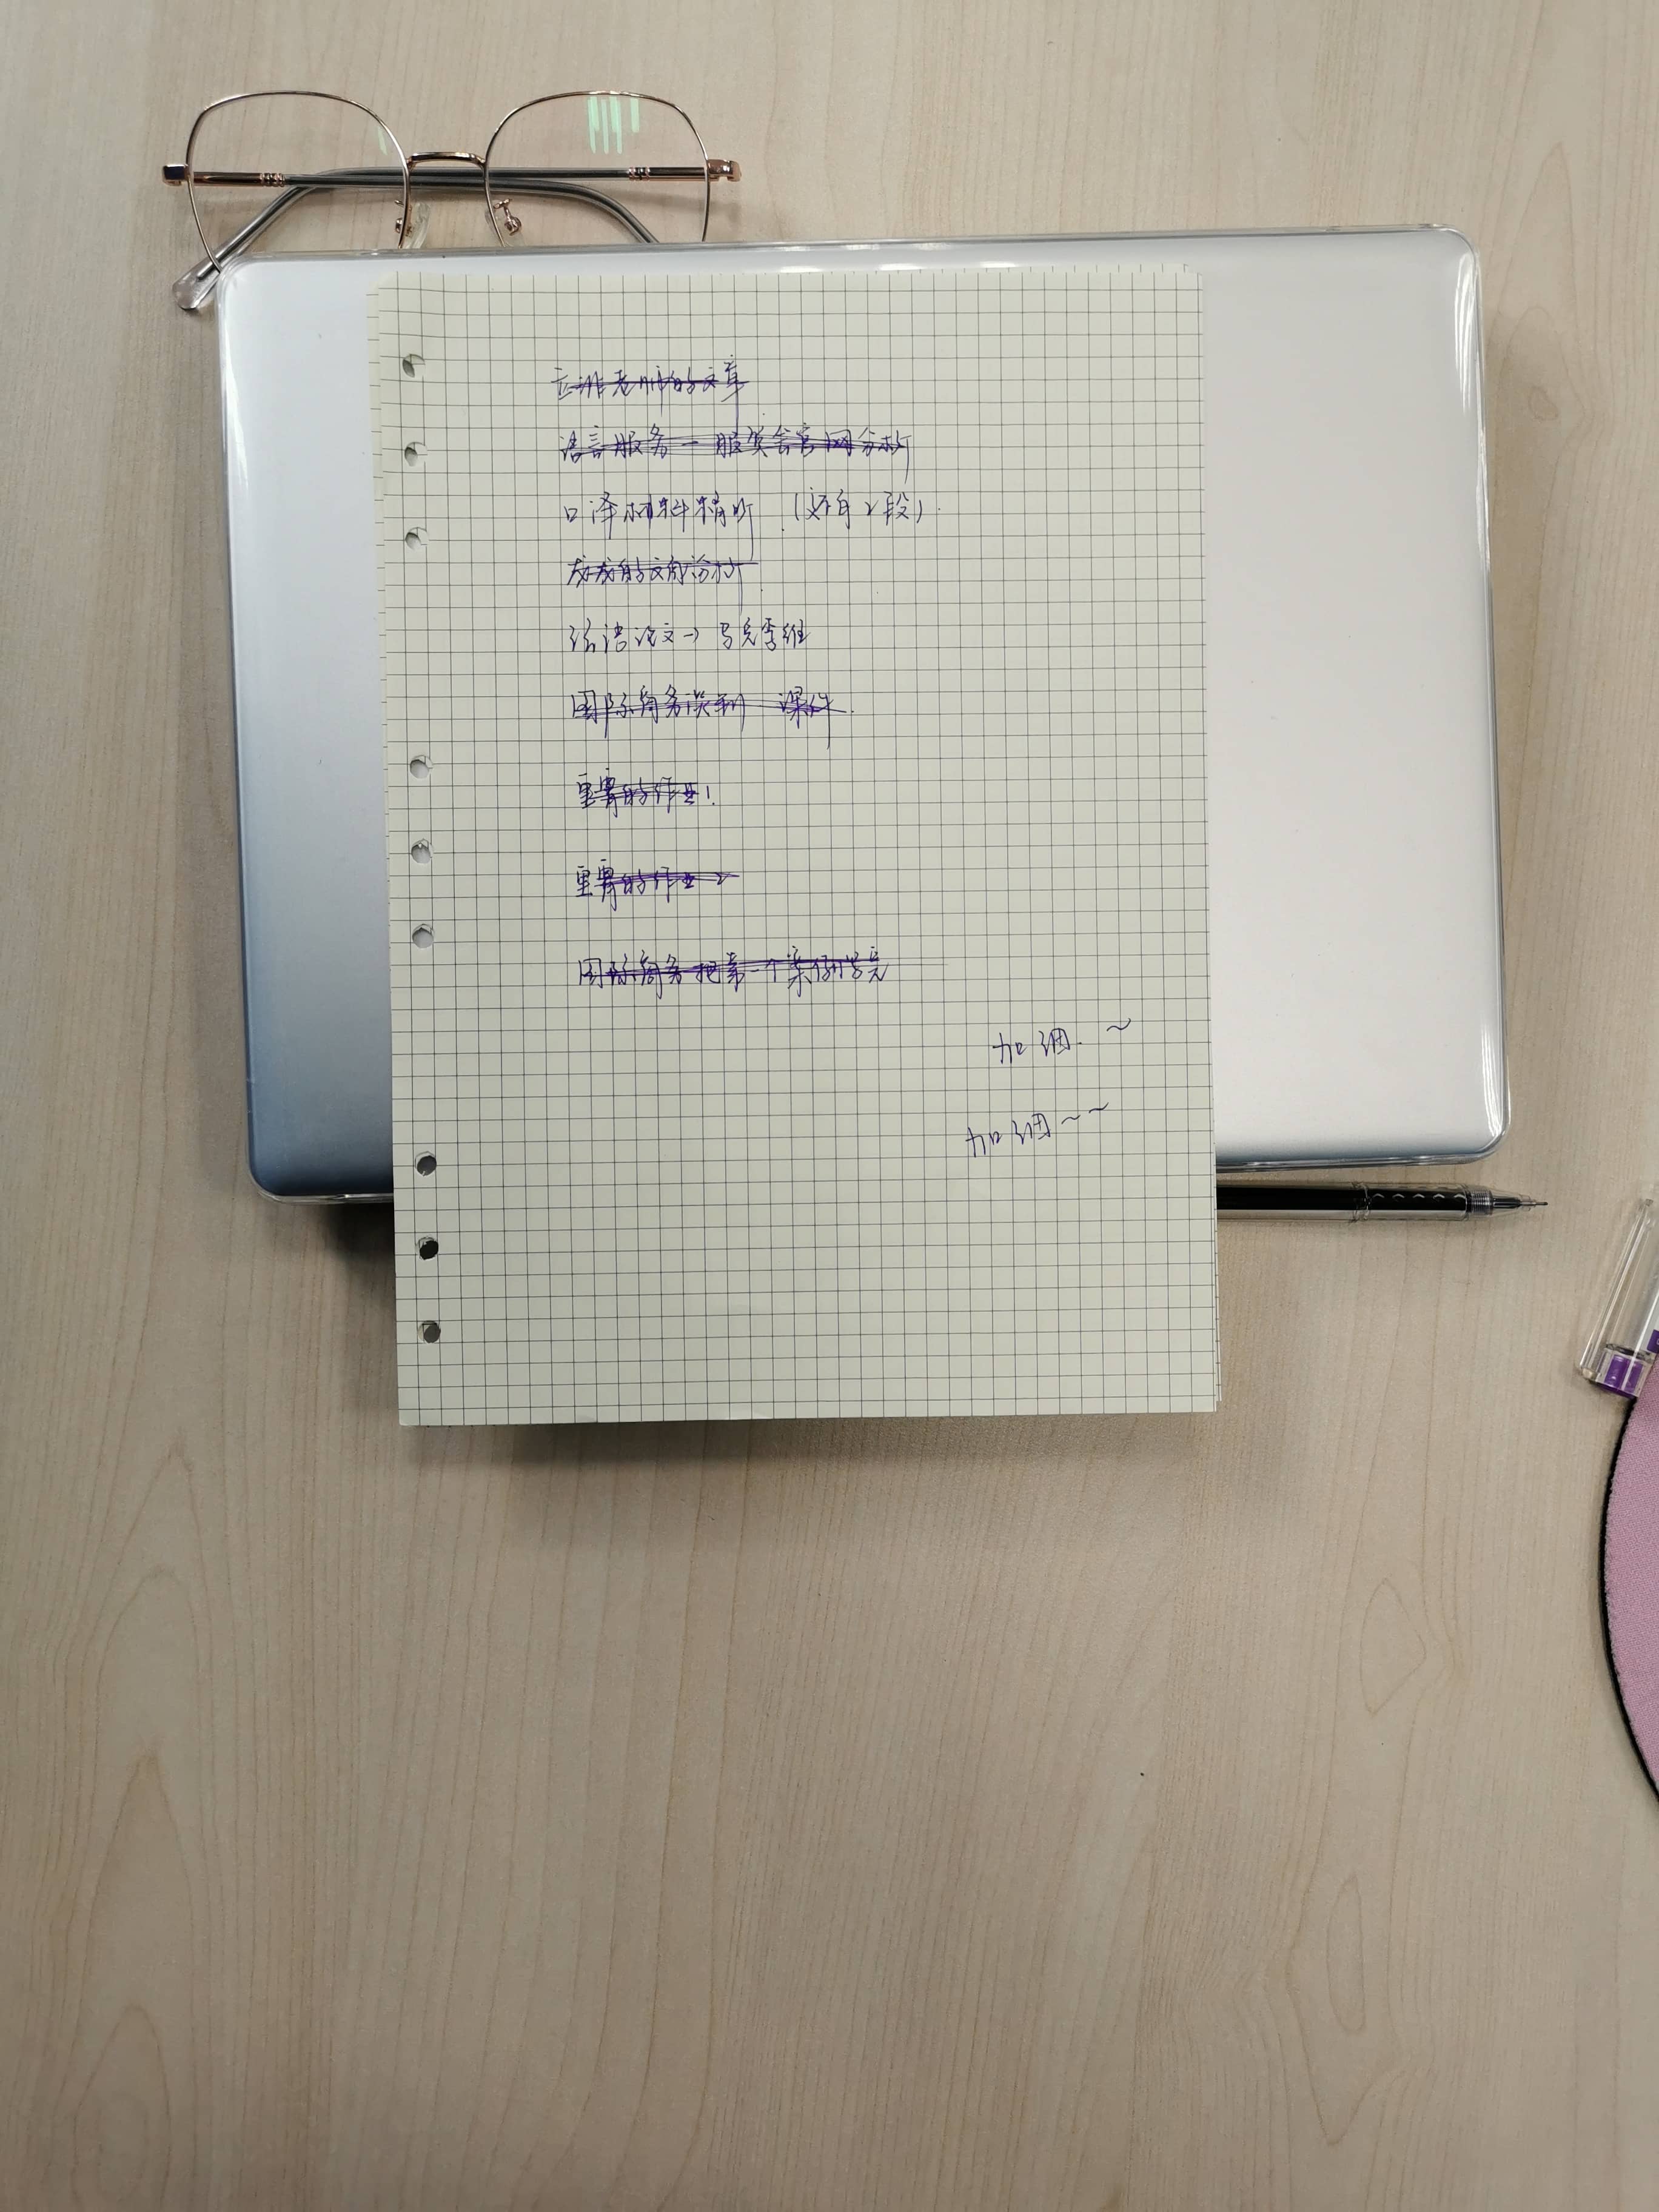 老师的文章
语言服务－服贸会官网分析
口译材料精听（还有2段）
的文献分析
法语论文→马克李维
国际商务谈判 课件
重要的作业！
重要的作业2
国际商务把第一个案例学完
加油～
加油～～